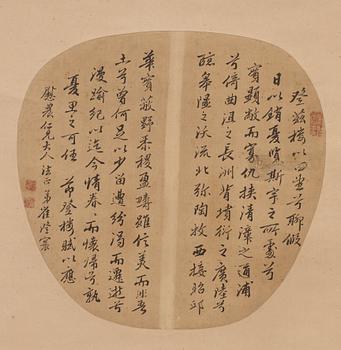 登茲樓以四望兮聊假
日以銷憂覽斯宇之所處兮
實顯敞而寡仇挾清漳之通浦
兮倚曲沮之長洲背墳衍之廣陸兮
臨皋隰之沃流北彌陶牧西接昭邱
華實蔽野黍稷盈疇雖信美而非吾
土兮曾何足以少留遭紛濁而遷逝兮
漫踰紀以迄今情眷々而懷歸兮孰
憂思之可任 節登樓賦以應
慰農仁兄大人法正 弟崔